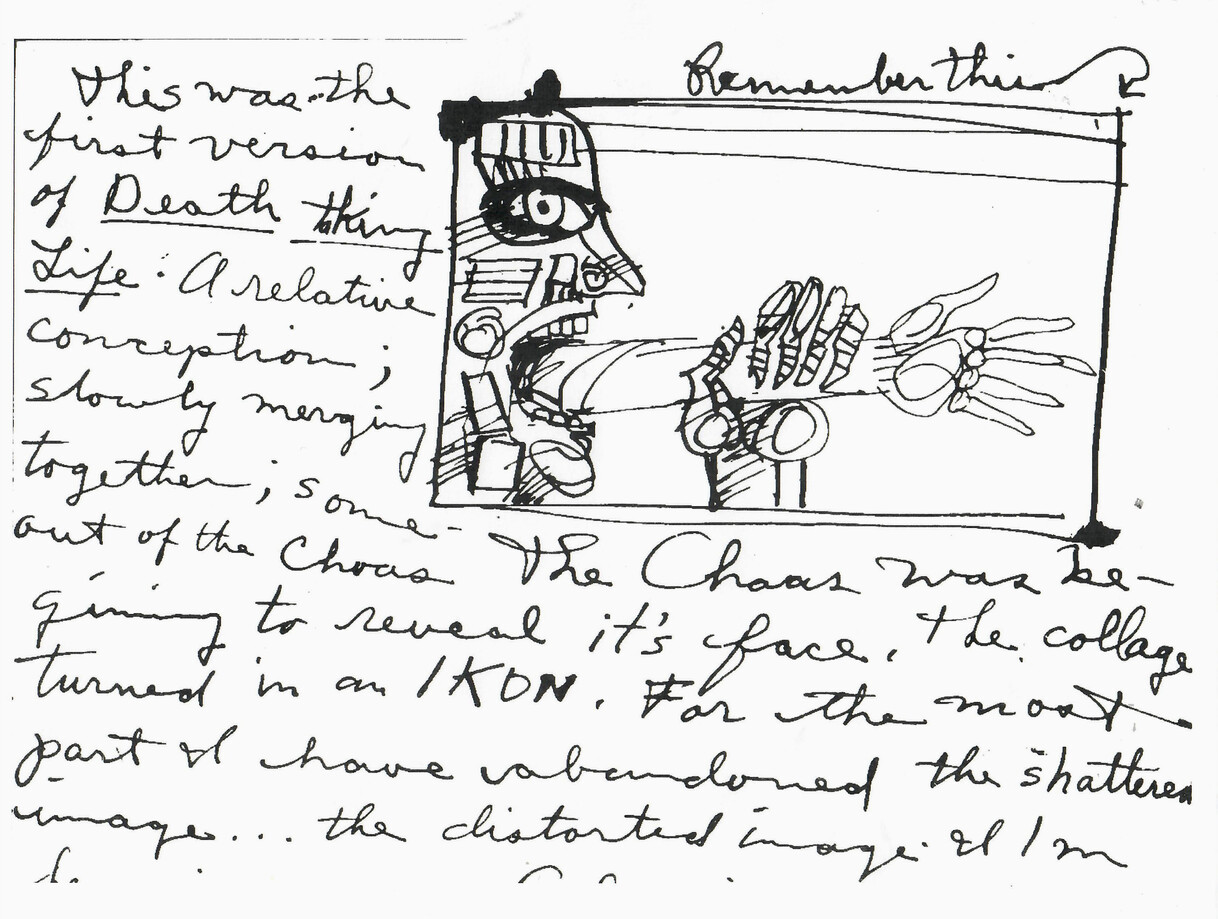 Remember this
This was the
first version
of Death tking
Life: A relative
conception;
slowly merging
together; some-
out of the Choas The Chaos was be-
gining to reveal it's face. The collage
turned in an IKON. For the most
part I have abandoned the shattered
image... the distorted image. I I'm